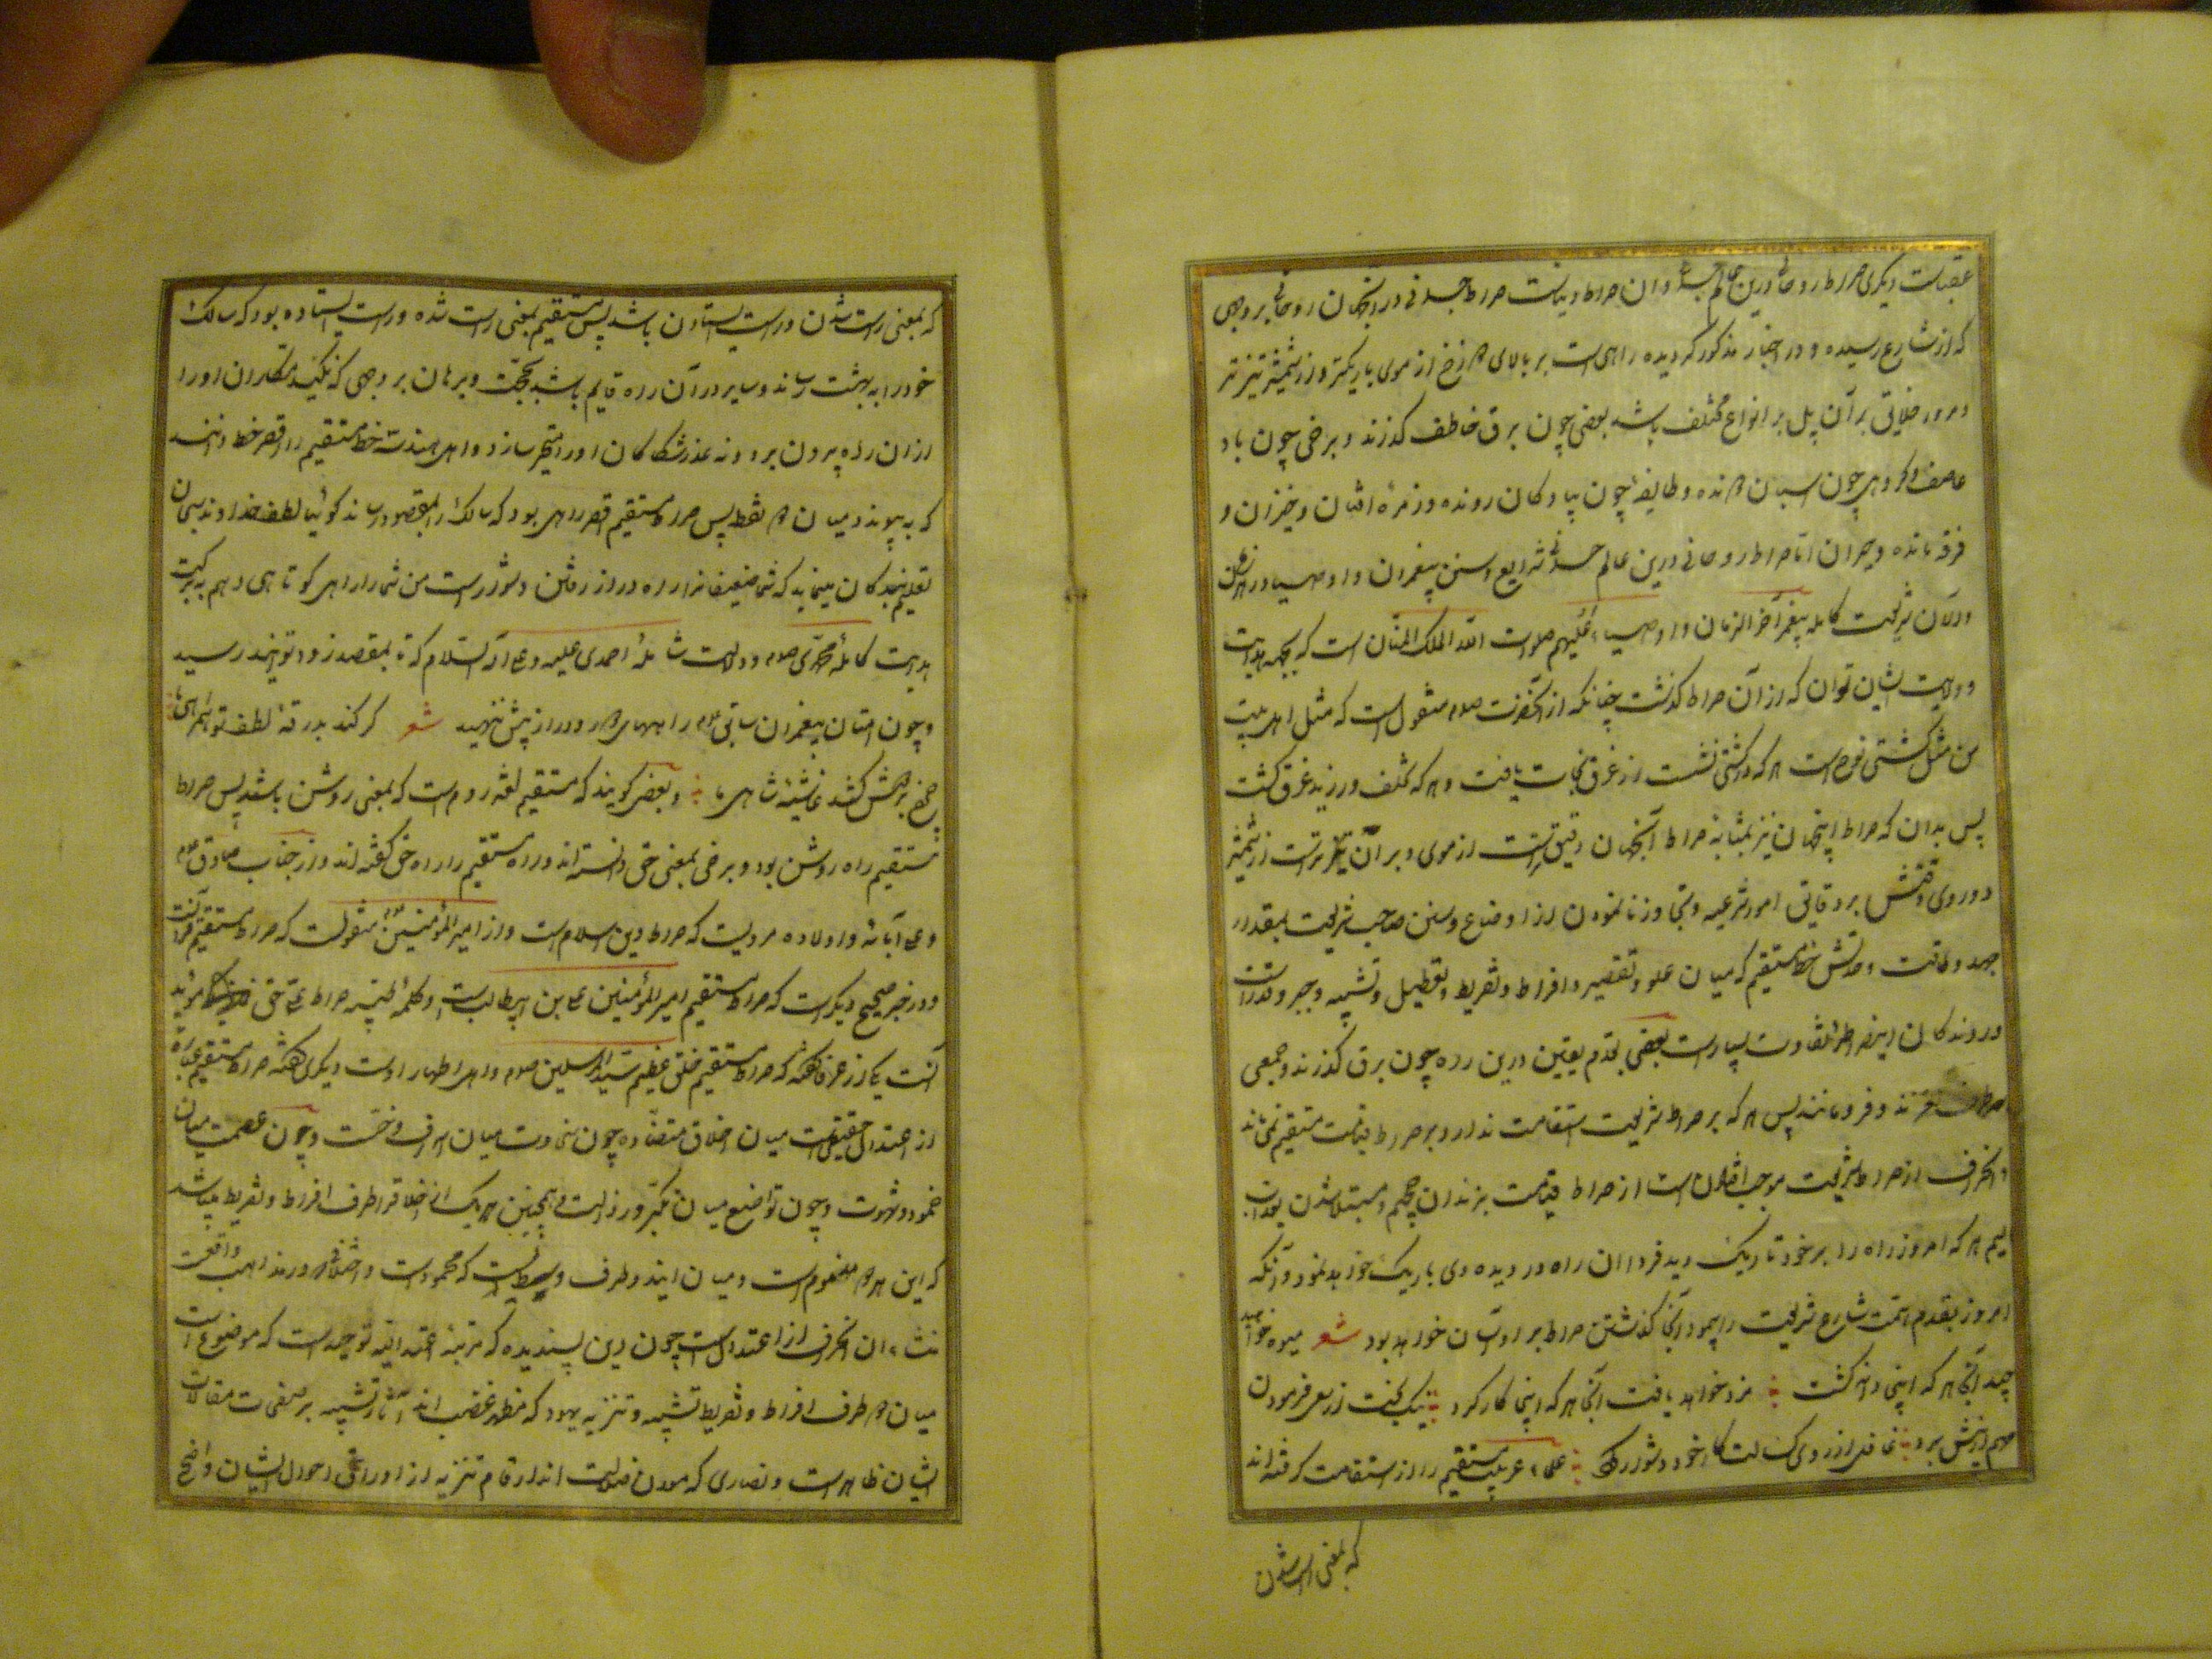 عقبات دیگری صراط روحانی درین عالم جسمانی و ان صراط دنیاست صراط جسمانی در آنجهان روحانی بر وجهی
که از شارع رسیده و در اخبار مذکور گردیده راهی است بر بالای دوزخ از موی باریکتر و از شمشیر تیزتر
و مرور خلایق بر آن پل بر انواع مختلف باشد بعضی چون برق خاطف گذرند و برخی چون باد
عاصف و گروهی چون اسبان دونده و طایفهٔ چون پیادگان رونده و زمرهٔ افتان و خیزان و
فرو مانده و حیران اما صراط روحانی درین عالم جسمانی شرایع و سنن پیغمبران و اوصیا در هر زمان
و درین شریعت کامله پیغمبر آخر الزمان و اوصیاء علیهم صلوات الله الملک المنان است که بجهه هدایت
و ولایت ایشان توان که از آن صراط گذشت چنانکه از آنحضرت صلعم منقول است که مثل اهل بیت
من مثل کشتی نوح است هر که در کشتی نشست از غرق نجات یافت و هر که تخلف ورزید غرق گشت
پس بدان که صراط اینجهان نیز بمثابهٔ صراط آنجهان دقیق تر است از موی و بران تیزتر است از شمشیر
و روی دقتش بر دقایق امور شرعیه و تجاوز نانمودن از اوضاع و سنن صاحب شریعت بمقدار
جهد و طاقت و حدتش خط مستقیم که میان علو و تقصیر و افراط و تفریط و تعطیل و تشبیه و جبر و قدر است
و روندکان این صراط را تفاوت بسیار است بعضی بقدم یقین درین راه چون برق گذرند و جمعی
لغزند و فرو مانند پس هر که بر صراط شریعت استقامت ندارد بر صراط قیامت مستقیم نماند
و انحراف از صراط شریعت موجب افتادن است از صراط قیامت بزندان جحیم و مبتلا شدن بعذاب
الیم هر که امروز راه را بر خود تاریک دید فردا ان راه در دیده وی باریک خواهد نمود و آنکه
امروز بقدم همت شارع شریعت را پیمود آنجا گذشتن صراط بر او آسان خواهد بود شعر میوه خواهد
چید آنجا هر که اینجا دانه کشت مزد خواهد یافت آنجا هر که اینجا کار کرد نیک بخت از سعی فرمودن
مهم از پیش برد غافل از روی کسالت کار خود دشوار کرد علماء عربیت مستقیم را از استقامت گرفته اند
که بمعنی راست شدن
که بمعنی راست شدن و راست ایستادن باشد پس مستقیم بمعنی راست شده و راست ایستاده بود که سالک
خود را به بهشت رساند و سایر در آن راه قایم باشد بحجت و برهان بر وجهی که نکید منکران او را
از ان راه بیرون برد و نه عذر شکاکان او را متحیر سازد و اهل هندسه خط مستقیم را اقصر خط دانند
که به پیوند میان دو نقطه پس صراط مستقیم اقصر راهی بود که سالک را بمقصود رساند گوئیا لطف خداوند سبحان
تعلیم بندکان مینماید که شما ضعیف تنرا راه دراز رفتن دشوار است من شما را راهی کوتاهی دهم به برکت
هدایت کاملهٔ محمدی صلعم و ولایت شاملهٔ احمدی علیه و علی آله السلام که تا بمقصد زود توانید رسید
و چون امتان پیغمبران سابق را راههای دور و دراز پیش ننهید شعر گر کند بدرقهٔ لطف تو همراهی ما
چرخ بر دوش کشد غاشیهٔ شاهی ما و بعضی گویند که مستقیم لغه روم است که بمعنی روشن باشد پس صراط
مستقیم راه روشن بود و برخی بمعنی حق دانسته اند و راه مستقیم را راه حق گفته اند و از جناب صادق
و علی آبائه و اولاده مرویست که صراط دین اسلام است و از امیر المؤمنین منقولست که صراط مستقیم قرآنست
و در خبر صحیح دیگر است که صراط مستقیم امیر المؤمنین علی بن ابیطالب است و کلمهٔ طیبه صراط علی حق مؤید
آنست یکی از عرفا گفته که صراط مستقیم خلق عظیم سید المرسلین صلعم و اهل اطهار اوست دیگری گفته صراط مستقیم عبارة
از اعتدال حقیقی است میان اخلاق متضاده چون سخاوت میان اسراف و خست و چون عصمت میان
خمود و شهوت و چون تواضع میان تکبر و رذالت و همچنین هر یک از اخلاق را طرف افراط و تفریط میباشد
که این هر دو مذموم است و میان ایندو طرف وسطیست که محمود است و اختلاف در مذاهب واقعست
منشاء ان انحراف از اعتدال است چون دین پسندیده که مرتبهٔ اعتدالیه توحید است که موضوع است
میان دو طرف افراط و تفریط تشبیه و تنزیه یهود که مظهر غضب اند آثار تشبیه بر صفحات مقالات
ایشان ظاهر است و نصاری که معدن ضلالت اند ارقام تنزیه از اوراق احوال ایشان واضح